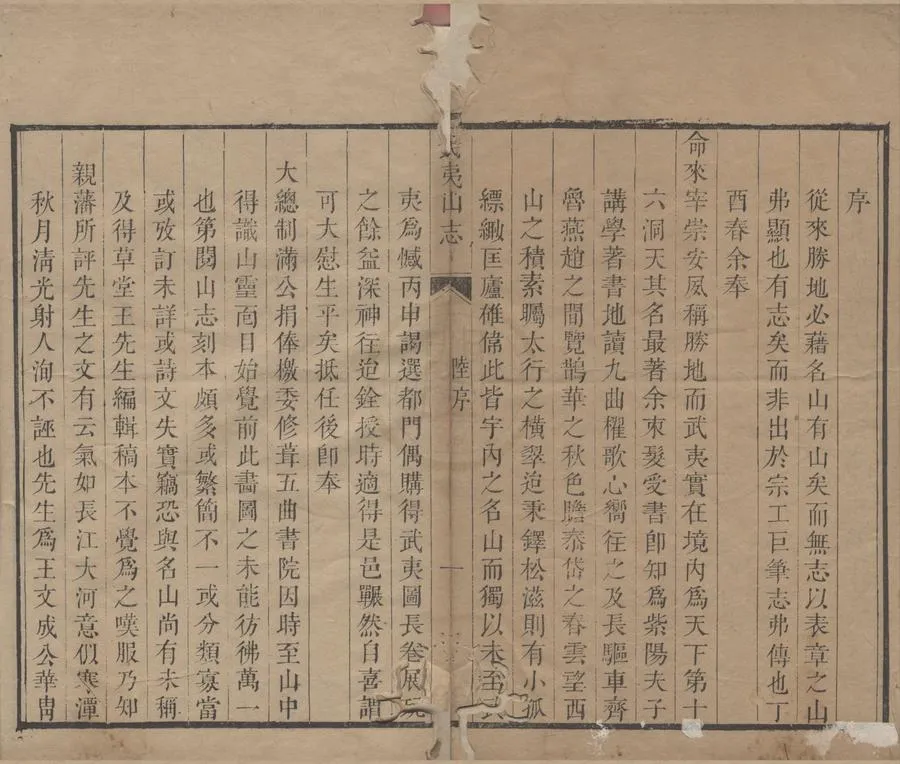 序
從來勝地必藉名山有山矣而無志以表章之山
弗顯也有志矣而非出於宗工巨筆志弗傳也丁
酉春余奉
命來宰崇安夙稱勝地而武夷實在境內為天下第十
六洞天其名最著余束髮受書卽知為紫陽夫子
講學著書地讀九曲櫂歌心嚮往之及長驅車齊
魯燕趙之間覽鵲華之秋色瞻泰岱之春雲望西
山之積素矚太行之橫翠迨秉鐸松滋則有小孤
縹緲匡廬雄偉此皆宇內之名山而獨以未至
夷山志
陸序
一
夷爲憾丙申謁選都門偶購得武夷圖長卷展玩
之餘益深神往迨銓授時適得是邑囅然自喜謂
可大慰生平矣抵任後卽奉
大總制滿公捐俸檄委修葺五曲書院因時至山中
得識山靈面目始覺前此畵圖之未能彷彿萬一
也第閱山志刻本頗多或繁簡不一或分類寡當
或攷訂未詳或詩文失實竊恐與名山尚有未稱
及得草堂王先生編輯稿本不覺爲之嘆服乃知
親藩所評先生之文有云氣如長江大河意似寒潭
秋月清光射人洵不誣也先生爲王文成公華胄